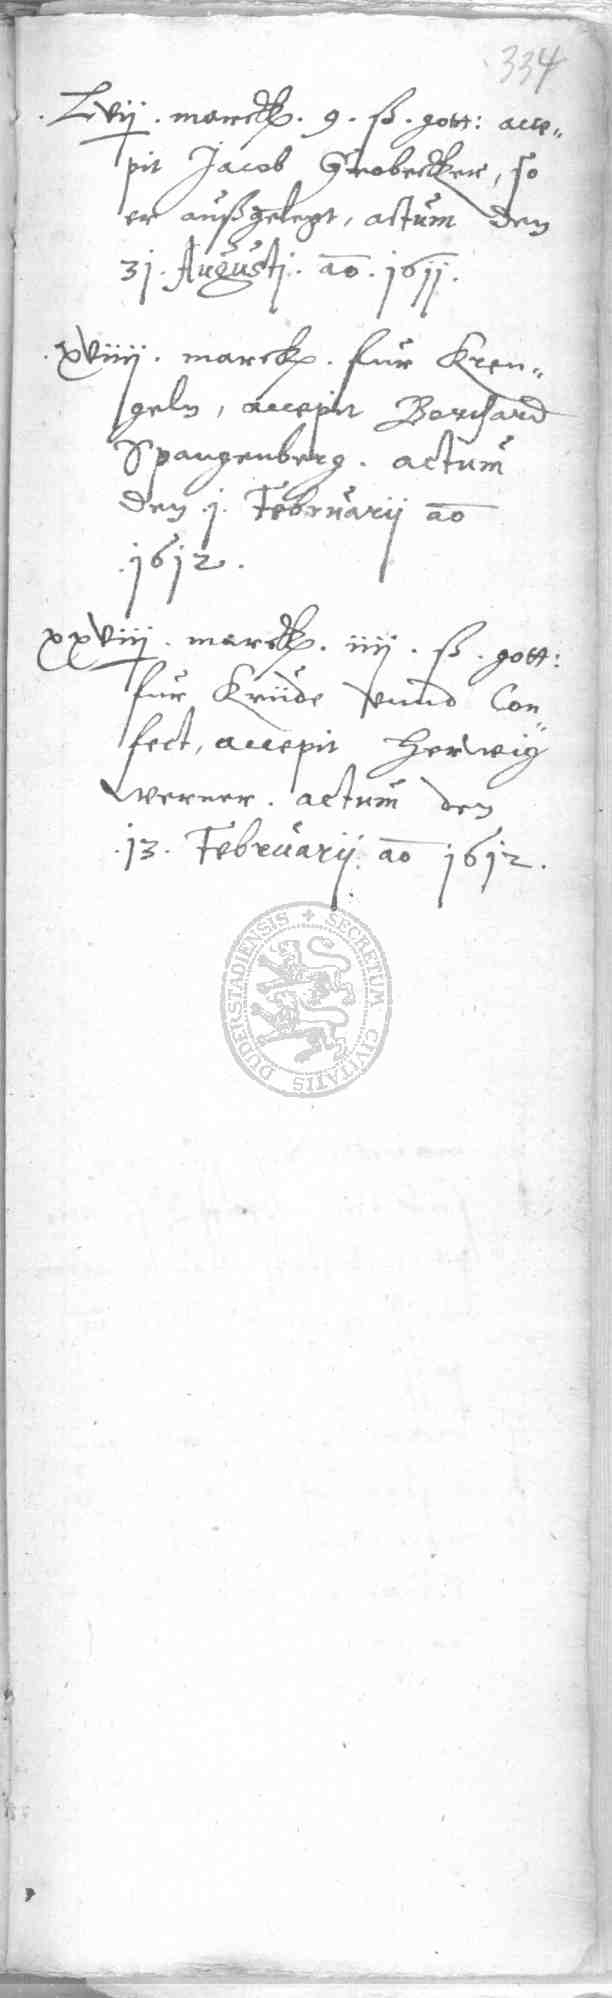 334
. Lvij . marck . 9 . ß . gott: acce„
pit Jacob Grobecker, so
er außgelegt, actum den
3j. Augustj. ao . j6jj.
. xviiij . marck . fur Kren„
geln, accepit Borchard
Spangenberg . actum
den .j. Februarij ao
.j6j2.
xxviij . marck . iiij . ß . gott:
fur Krüde vnnd Con„
fect, accepit Herwig
Werner . actum den
.j3. Februarij. ao j6j2.
SECRETUM CIVITATIS DUDERSTADIENSIS